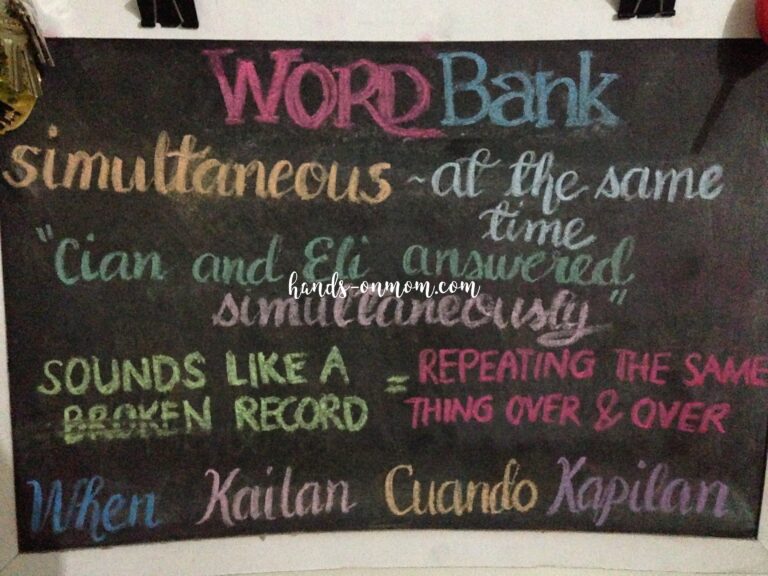 WORD Bank
simultaneous ~ at the same
time
"Cian and Eli answered
hands-onmom.com
simultaneously"
SOUNDS LIKE A = REPEATING THE SAME
BROKEN RECORD THING OVER & OVER
When Kailan Cuando Kapilan